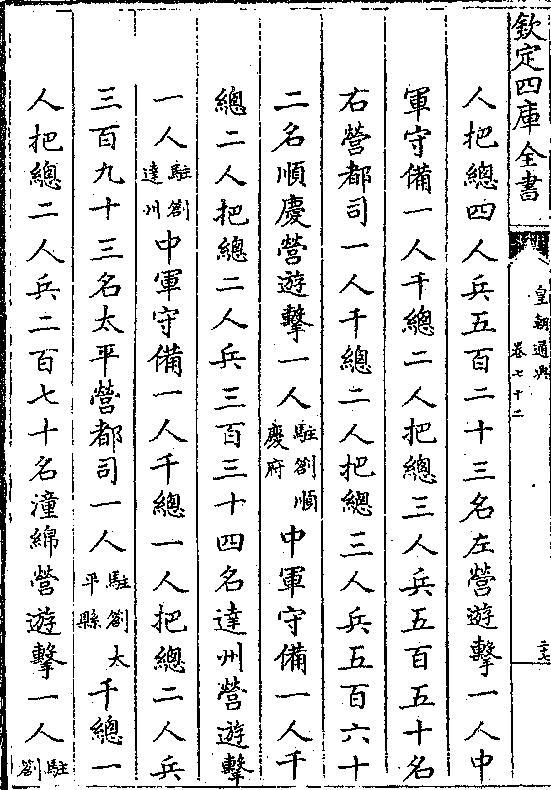 欽定四庫全書
皇朝通典
卷七十二
人把總四人兵五百二十三名左營遊擊一人中
軍守備一人千總二人把總三人兵五百五十名
右營都司一人千總二人把總三人兵五百六十
二名順慶營遊擊一人駐劄順慶府中軍守備一人千
總二人把總二人兵三百三十四名達州營遊擊
一人駐劄達州中軍守備一人千總一人把總二人兵
三百九十三名太平營都司一人駐劄太平縣千總一
人把總二人兵二百七十名潼綿營遊擊一人駐劄